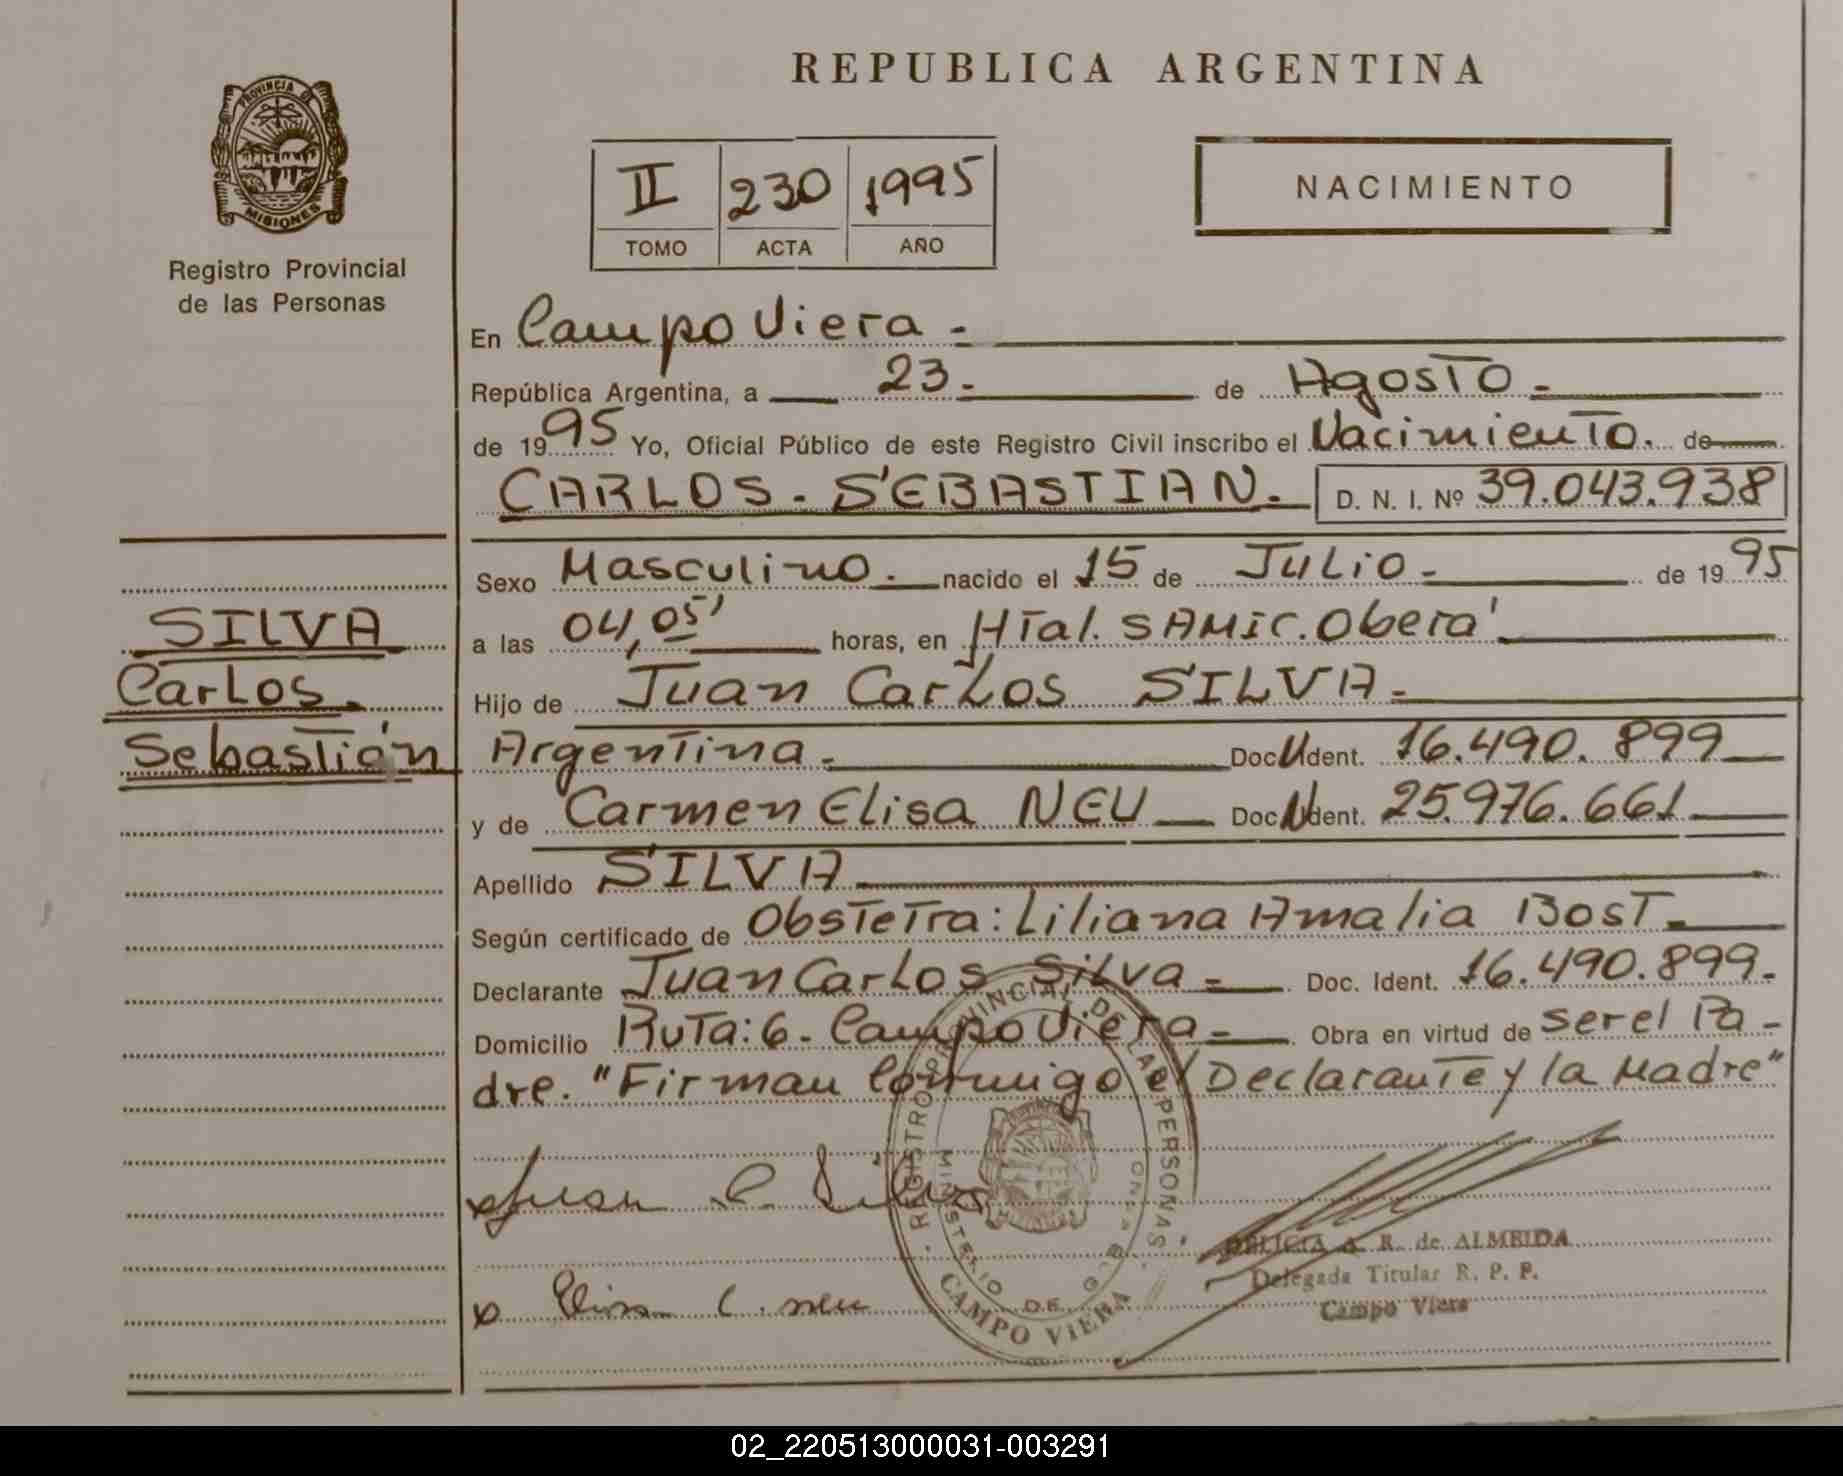 REPUBLICA ARGENTINA
PROVINCIA DE
MISIONES
Registro Provincial
de las Personas
II 230 1995
TOMO ACTA AÑO
NACIMIENTO
En Campo Viera -
República Argentina, a 23 - de Agosto -
de 1995 Yo, Oficial Público de este Registro Civil inscribo el Nacimiento. de
CARLOS - SEBASTIAN - D. N. I. Nº 39.043.938
Sexo Masculino. nacido el 15 de Julio - de 1995
SILVA
Carlos
Sebastián
a las 04,05' horas, en Htal. SAMIC. Oberá
Hijo de Juan Carlos SILVA -
Argentina - Doc. Ident. 16.490.899
y de Carmen Elisa NEU Doc. Ident. 25.976.661
Apellido SILVA
Según certificado de Obstetra: Liliana Amalia Bost -
Declarante Juan Carlos Silva - Doc. Ident. 16.490.899.
Domicilio Ruta: 6 - Campo Viera - Obra en virtud de ser el Pa-
dre. "Firman Conmigo el Declarante y la Madre"
Juan C. Silva
REGISTRO PROVINCIAL DE LAS PERSONAS
MINISTERIO DE
CAMPO VIERA
DELICIA A. R. de ALMEIDA
Delegada Titular R. P. P.
Campo Viera
Elisa C. Neu
02_220513000031-003291